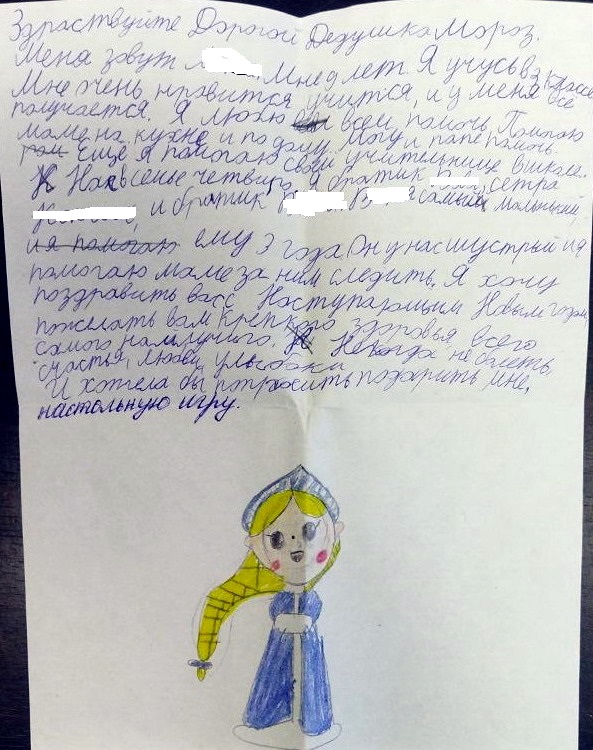 Здраствуйте Дорогой Дедушка Мороз.
Меня зовут Мне 9 лет. Я учусь в 3 классе
Мне очень нравится учится, и у меня всё
получается. Я люблю всем помочь. Помогаю
маме на кухне и по дому. Могу и папе помочь.
Ещё я помогаю своей учительнице в школе.
Нас в семье четверо, я братик сестра
и братик самый маленький,
и я помогаю ему 3 года Он у нас шустрый и я
помогаю маме за ним следить. Я хочу
поздравить васс Наступающим Новым годом
пожелать вам крепкого здоровья, всего
самого наилучшего. Некогда не болеть,
счастья, любви, улыбоки
И хотела бы попросить подарить мне,
настольную игру.